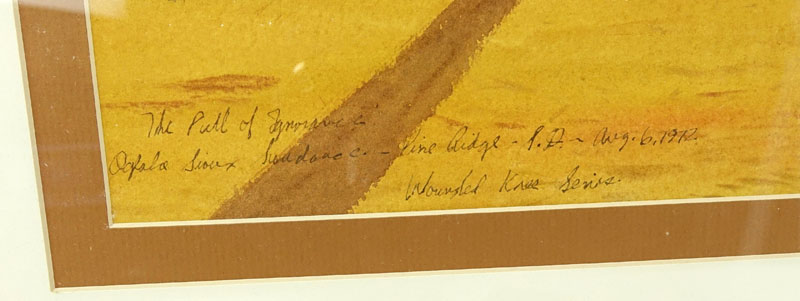 The Pull of Ignorance"
Oglala Sioux Sundance. - Pine Ridge - S.D. - Aug. 6, 1972.
Wounded Knee Series.